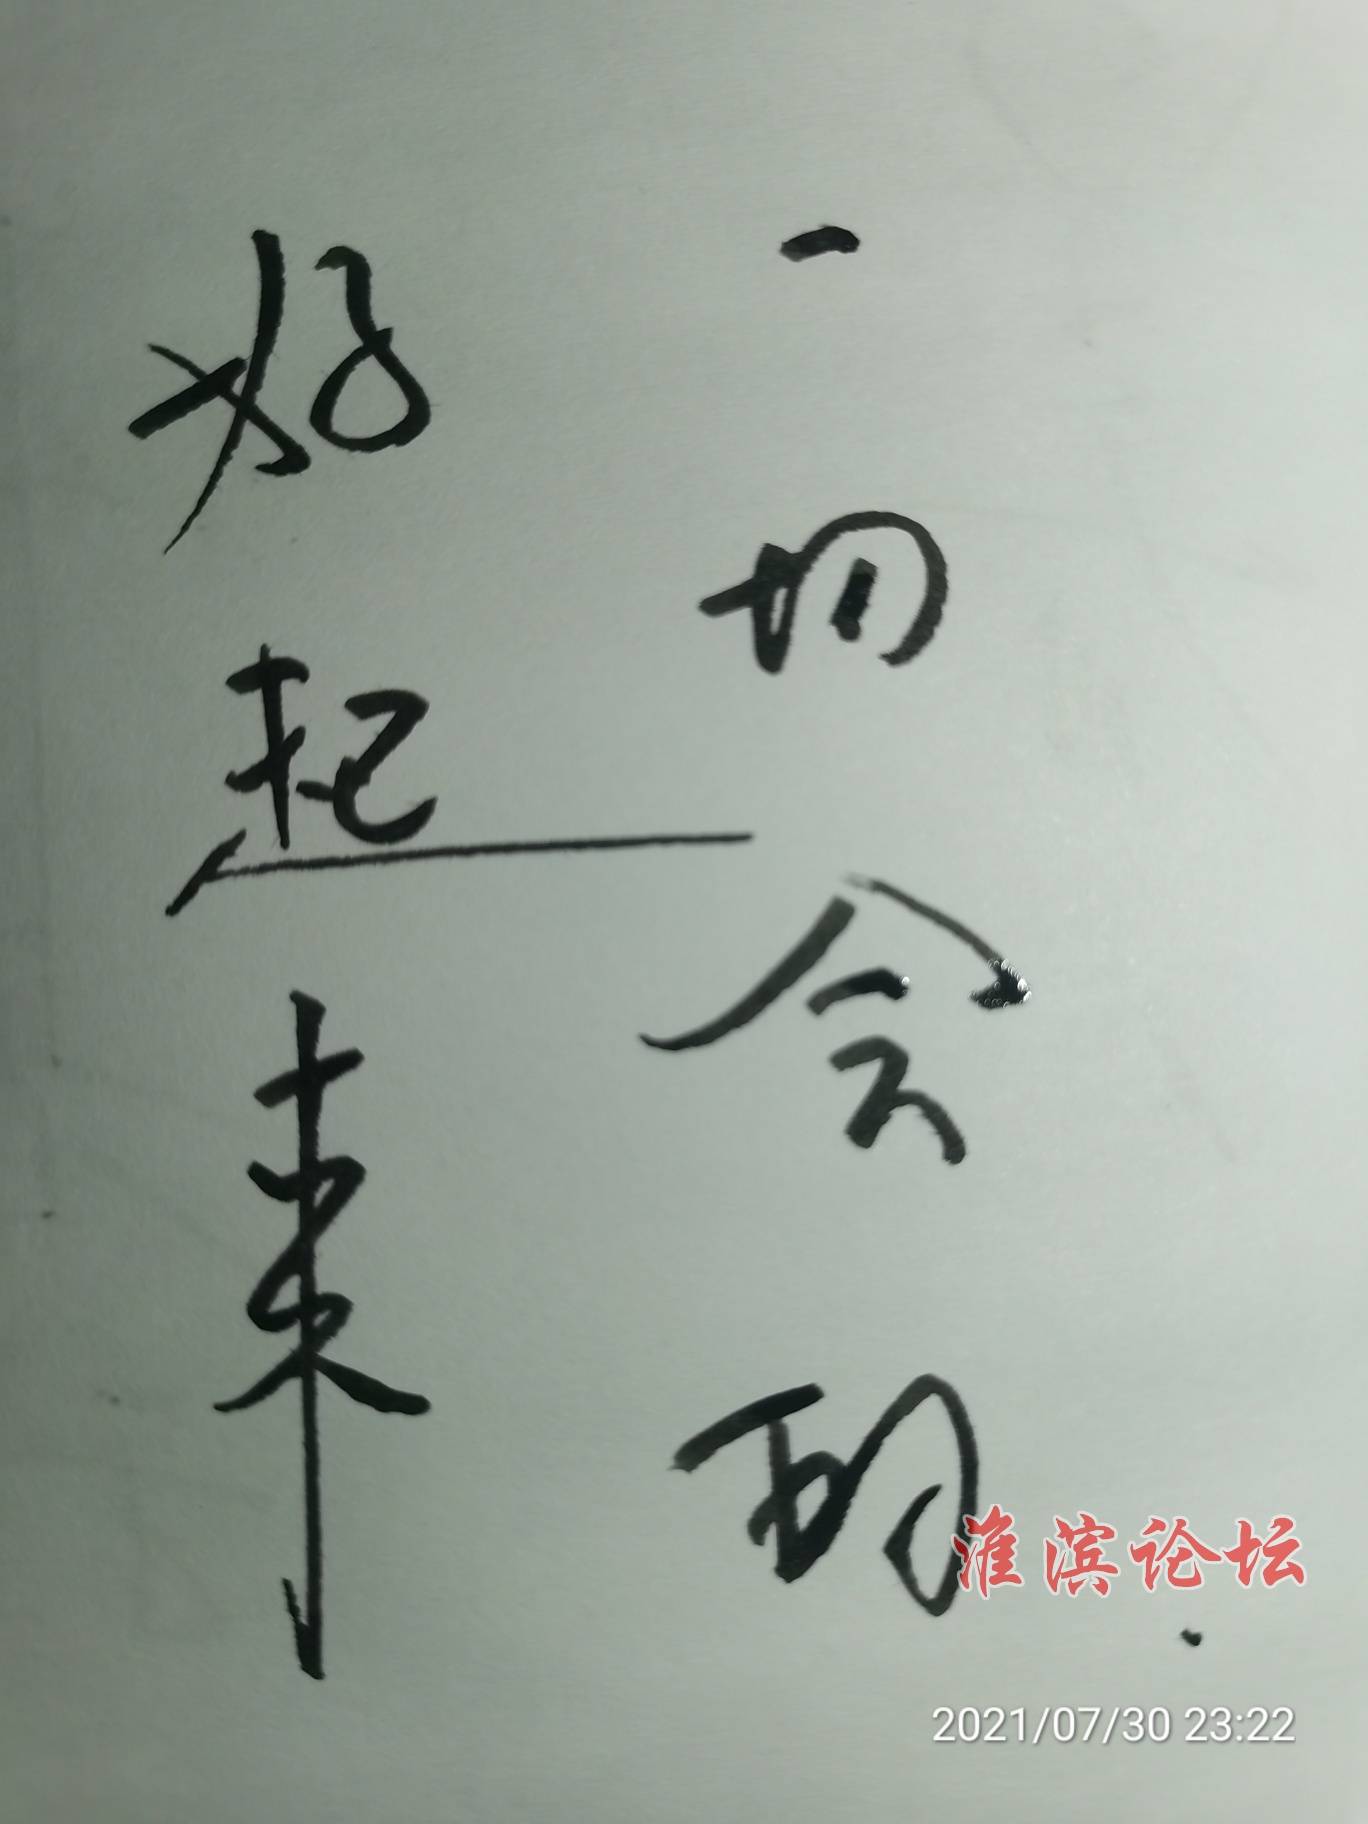 一切会的
好起来
淮滨论坛
2021/07/30 23:22